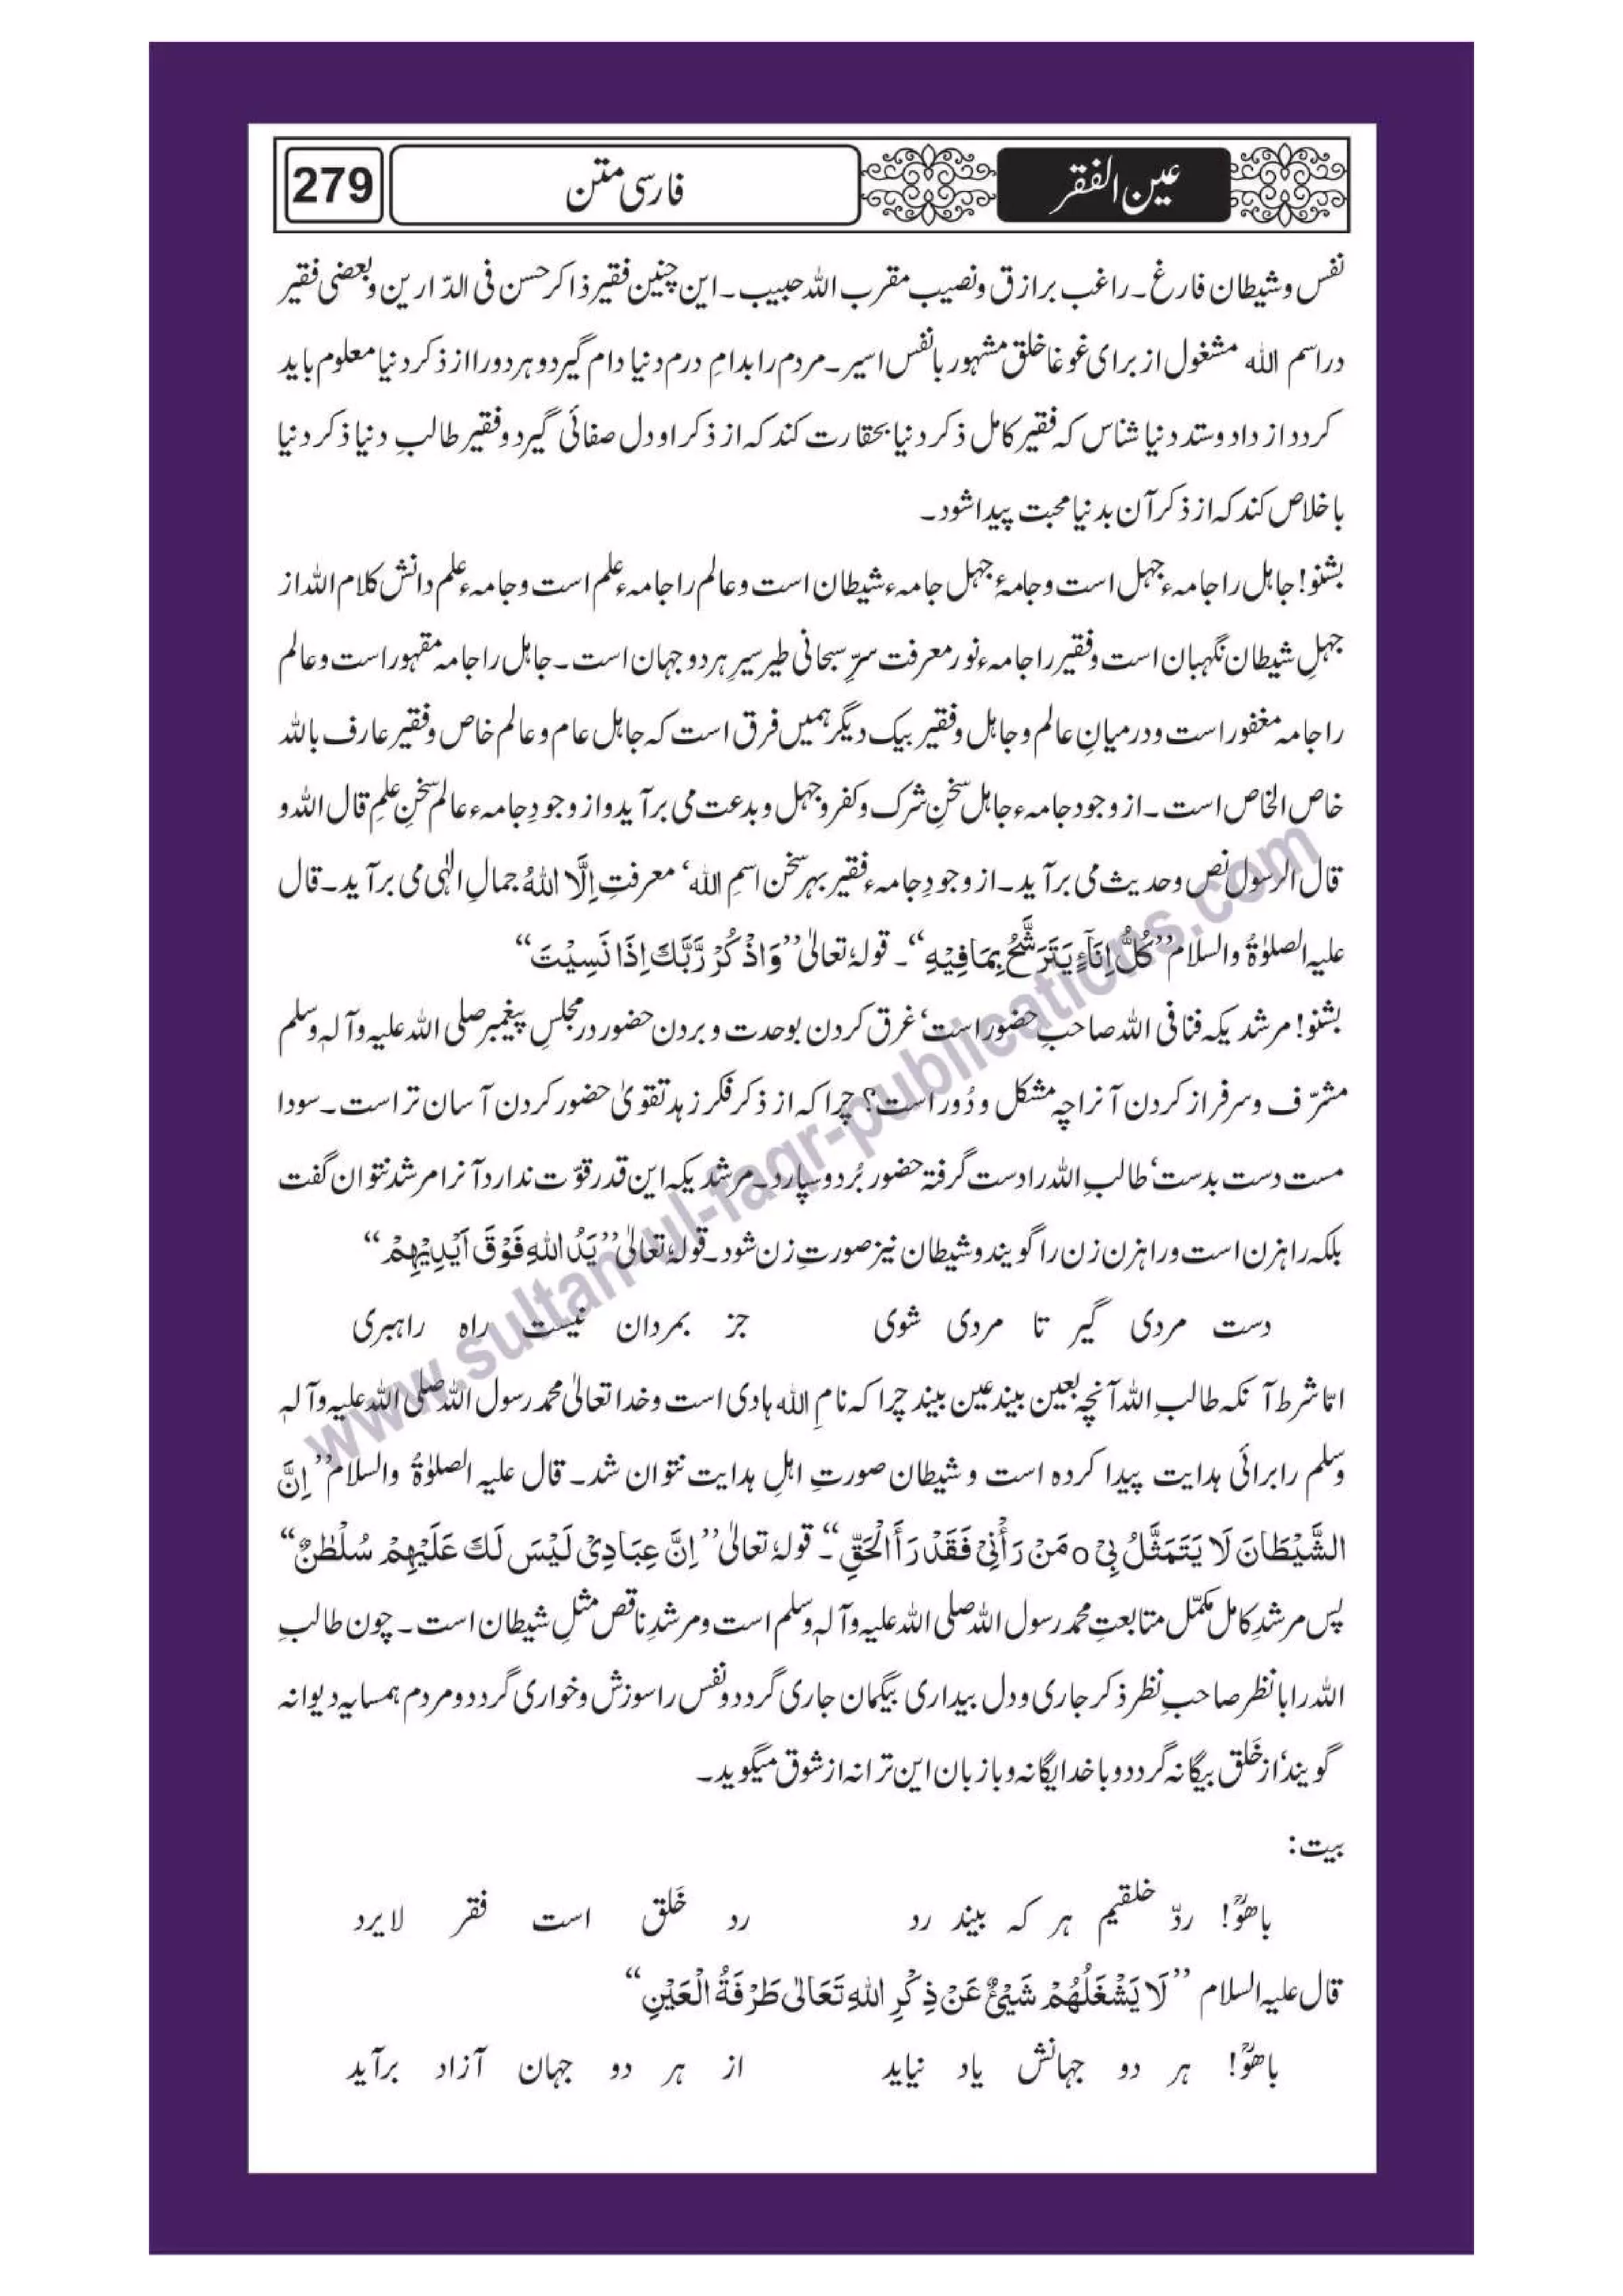 عین الفقر
فارسی متن
279
نفس و شیطان فارغ۔ راغب برازق و نصیب مقرب اللہ حبیب۔ این چنین فقیر ذاکر حسن فی الدّارین و بعضی فقیر
در اسم اللہ مشغول از برای غوغا خلق مشہور با نفس اسیر۔ مردم را بدامِ درم دنیا دام گیرد و ہر دو را از ذکر دنیا معلوم باید
کرد د از داد و ستد دنیا شناس کہ فقیر کامل ذکر دنیا بحقارت کند کہ از ذکر او دل صفائی گیرد و فقیر طالبِ دنیا ذکر دنیا
باخلاص کند کہ از ذکر آن بدنیا محبت پیدا شود۔
بشنو! جاہل را جامہء جہل است و جامۂ جہل جامہء شیطان است و عالم را جامہء علم است و جامہء علم دانش کلام اللہ از
جہلِ شیطان نگہبان است و فقیر را جامہء نور معرفت سرِّ سبحانی طیر سیرِ ہر دو جہان است۔ جاہل را جامہ مقہور است و عالم
را جامہ مغفور است و درمیانِ عالم و جاہل و فقیر بیک دیگر ہمیں فرق است کہ جاہل عام و عالم خاص و فقیر عارف باللہ
خاص الخاص است۔ از وجود جامہء جاہل سخنِ شرک و کفر و جہل و بدعت می برآید و از وجودِ جامہء عالم سخنِ علمِ قال اللہ و
قال الرسول نص و حدیث می برآید۔ از وجودِ جامہء فقیر بہر سخن اسمِ اللہ، معرفتِ اِلَّا اللہُ جمالِ الٰہی می برآید۔ قال
علیہ الصلوٰۃُ والسلام ’’کُلُّ اِنَآءٍ یَتَرَشَّحُ بِمَا فِیْہِ‘‘۔ قولہٗ تعالیٰ ’’وَاذْکُرْ رَّبَّكَ اِذَا نَسِیْتَ‘‘
بشنو! مرشدیکہ فنا فی اللہ صاحبِ حضور است، غرق کردن بوحدت و بردن حضور در مجلسِ پیغمبر صلی اللہ علیہ وآلہٖ وسلم
مشرّف و سرفراز کردن آنرا چہ مشکل و دُور است؟ چرا کہ از ذکر فکر زہد تقویٰ حضور کردن آسان تر است۔ سودا
مست دست بدست، طالبِ اللہ را دست گرفتہ حضور بُرد و سپارد۔ مرشدیکہ این قدر قوّت ندارد آنرا مرشد نتوان گفت
بلکہ راہزن است و راہزن زن را گویند و شیطان نیز صورتِ زن شود۔ قولہٗ تعالیٰ ’’یَدُ اللہِ فَوْقَ اَیْدِیْہِمْ‘‘
دست مردی گیر تا مردی شوی جز بمردان نیست راہ راہبری
امّا شرط آنکہ طالبِ اللہ آنچہ بعین بیند عین بیند چرا کہ نامِ اللہ ہادی است و خدا تعالیٰ محمد رسول اللہ صلی اللہ علیہ وآلہٖ
وسلم را برائی ہدایت پیدا کردہ است و شیطان صورتِ اہلِ ہدایت نتوان شد۔ قال علیہ الصلوٰۃُ والسلام ’’اِنَّ
الشَّیْطَانَ لَا یَتَمَثَّلُ بِیْ ہ مَنْ رَأْنِیْ فَقَدْ رَأَ الْحَقِّ‘‘۔ قولہٗ تعالیٰ ’’اِنَّ عِبَادِیْ لَیْسَ لَكَ عَلَیْہِمْ سُلْطٰنٌ‘‘
پس مرشدِ کامل مکمّل متابعتِ محمد رسول اللہ صلی اللہ علیہ وآلہٖ وسلم است و مرشدِ ناقص مثلِ شیطان است۔ چون طالبِ
اللہ را با نظر صاحبِ نظر ذکر جاری و دل بیداری بیگمان جاری گردد و نفس را سوزش و خواری گردد و مردم ہمسایہ دیوانہ
گویند، از خَلق بیگانہ گردد و با خدا یگانہ و با زبان این ترانہ از شوق میگوید۔
بیت:
باھُوؒ! ردّ خلقیم ہر کہ بیند رد رد خَلق است فقر لایرد
قال علیہ السلام ’’لَا یَشْغَلُہُمْ شَیْئٌ عَنْ ذِکْرِ اللہِ تَعَالٰی طَرْفَۃُ الْعَیْنِ‘‘
باھُوؒ! ہر دو جہانش یاد نیاید از ہر دو جہان آزاد برآید
www.sultan-ul-faqr-publications.com